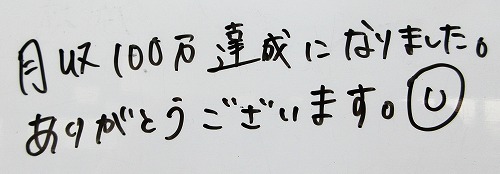 月収100万達成になりました。
ありがとうございます。